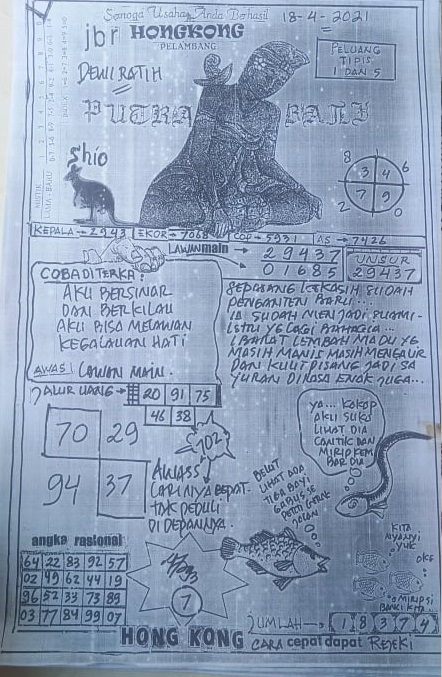 Semoga Usaha Anda Berhasil
18-4-2021
jbr HONGKONG
PELAMBANG
DEWI RATIH
PELUANG
TIPIS
1 DAN 5
PUTRA BALI
Shio
8 6
3 4
7 9
2 0
KEPALA → 2943 EKOR → 7068 COP → 5931 AS → 7426
LAWAN main → 29437
01685
UNSUR
29437
COBA DITERKA:
AKU BERSINAR
DAN BERKILAU
AKU BISA MELAWAN
KEGALAUAN HATI
AWAS! LAWAN MAIN.
SEPASANG KEKASIH SUDAH
PENGANTEN BARU...
IA SUDAH MENJADI SUAMI-
ISTRI YG LAGI BAHAGIA...
IBARAT LEMBAH MADU YG
MASIH MANIS MASIH MENGALIR
DAN KULIT PISANG JADI SA
YURAN DIRASA ENAK JUGA...
JALUR UANG → 20 91 75
46 38
70 29
94 37
702
AWASS
CARINYA CEPAT
TAK PEDULI
DI DEPANNYA.
BELUT
LIHAT ADA
TIGA BAYI
GABUS
ya... Kakap
AKU SUKA
LIHAT DIA
CANTIK DAN
MIRIP KEM
BAR DIA
KITA
NYANYI
YUK
OKE
MIRIP SI
angka rasional
64 22 83 92 57
02 49 62 44 19
96 52 33 73 89
03 77 84 99 07
7
JUMLAH → 1 8 3 7 4
HONG KONG CARA cepat dapat REJEKI